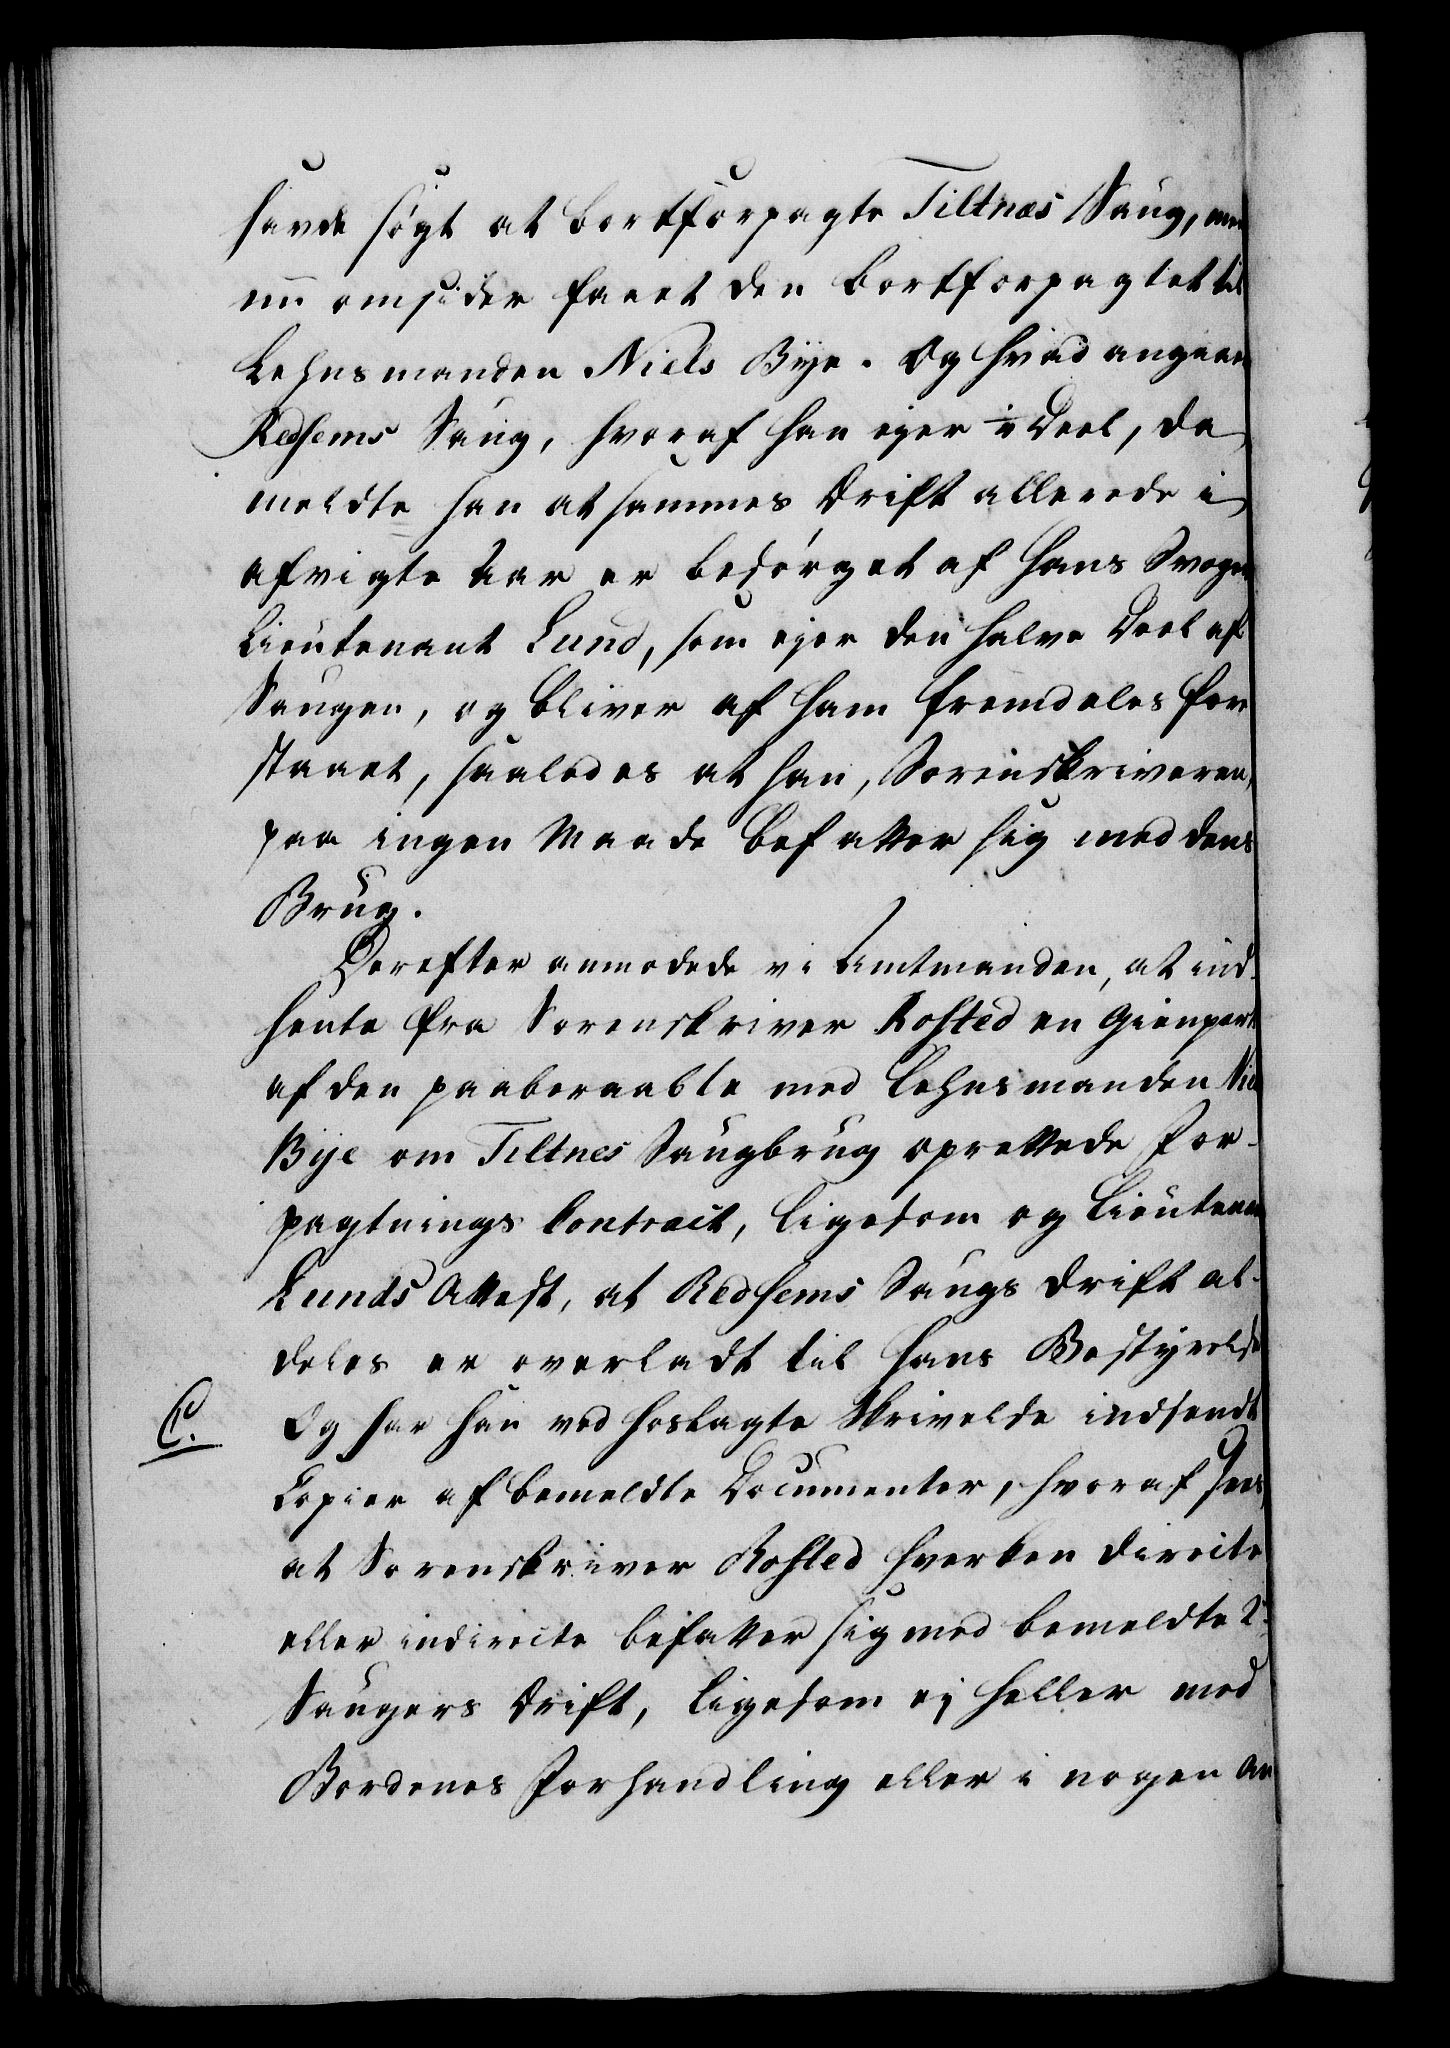 havde søgt at bortforpagte Tiltnæs Saug, men
nu omsider faaet den bortforpagtet til
Lehnsmanden Niels Bye. Og hvad angaaer
Redsems Saug, hvoraf han eyer Deel, da
meldte han at sammes Drift allerede i
afvigte Aar er besørget af hans Svoger
Lieutenant Lund, som eyer den halve Deel af
Saugen, og bliver af ham fremdeles fore
staaet, saaledes at han, Sorenskriveren,
paa ingen Maade befatter sig med dens
Brug.
Derefter anmodede vi Amtmanden, at ind-
hente fra Sorenskriver Rosted en Gienpart
af den paaberaabte med Lehnsmanden Niels
Bye om Tiltnes Saugbrug oprettede For-
pagtnings Contract, ligesom og Lieutenant
Lunds Attest, at Redsems Saugs Drift al-
deles er overladt til hans Bestyrelse
C. Og har han ved hoslagte Skrivelse indsendt
Copier af bemeldte Documenter, hvoraf sees,
at Sorenskriver Rosted hverken directe
eller indirecte befatter sig med bemeldte 2de
Saugers Drift, ligesom ej heller med
Bordenes Forhandling eller i nogen An